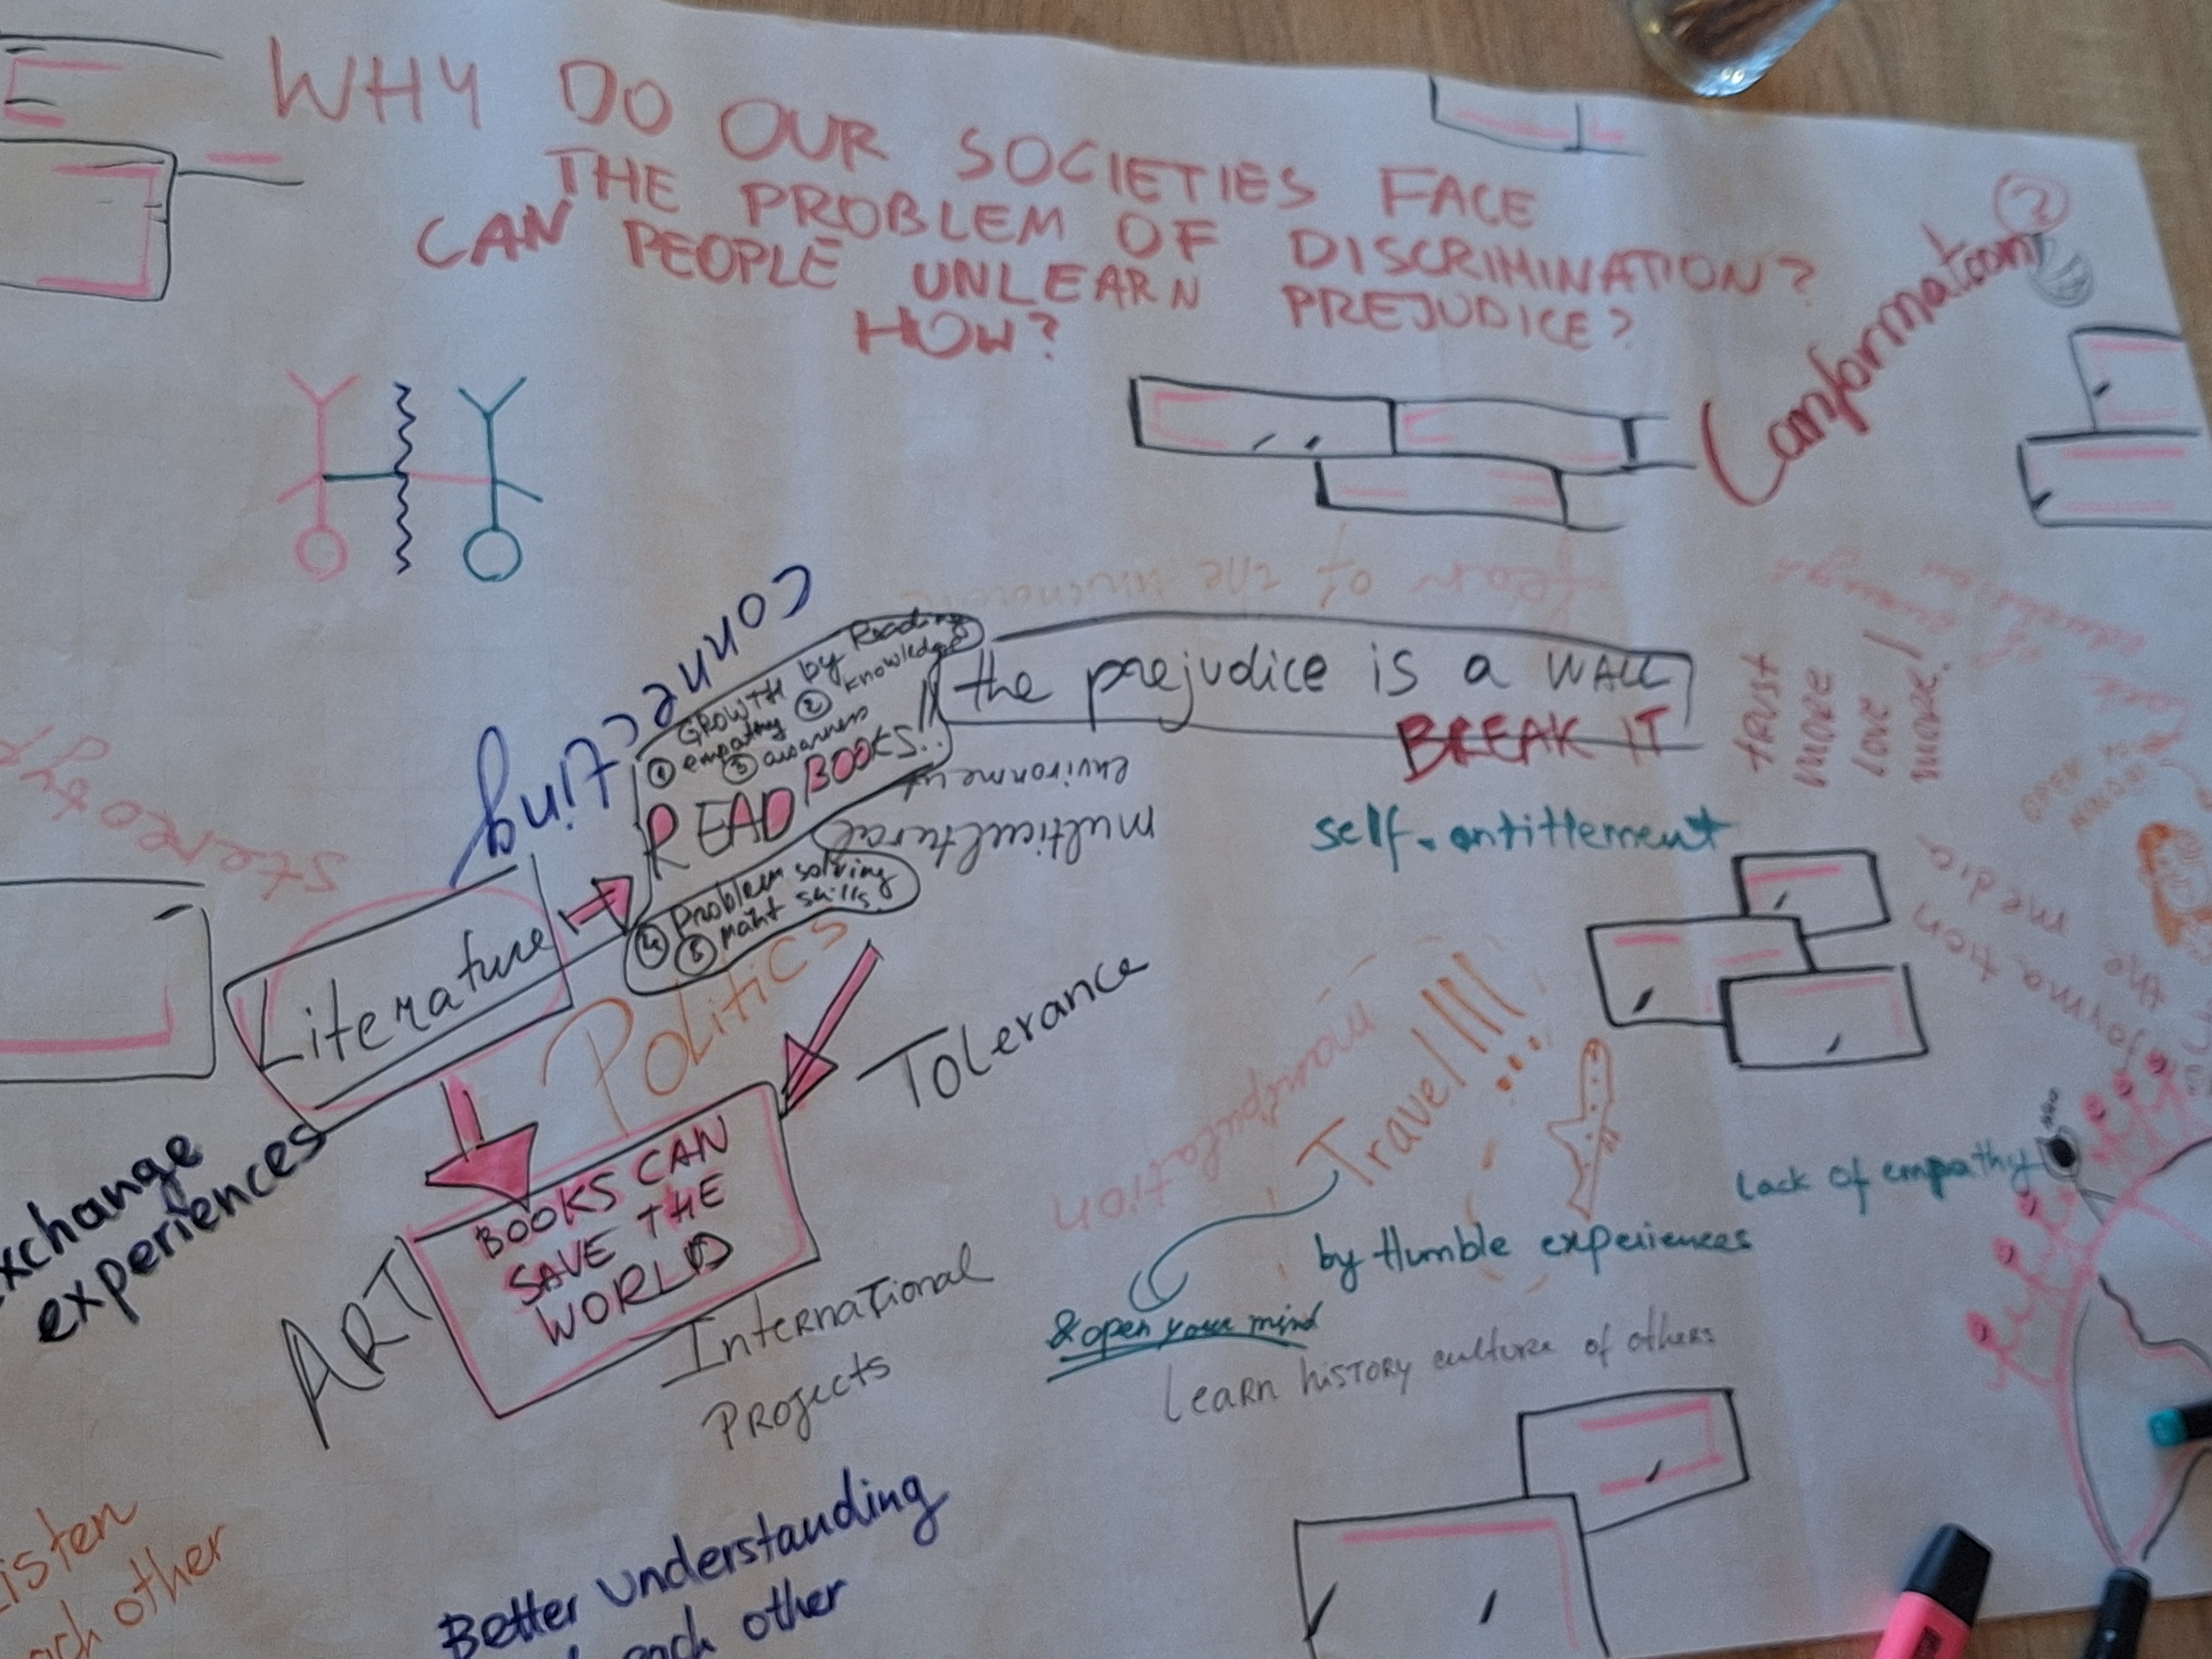 WHY DO OUR SOCIETIES FACE
THE PROBLEM OF DISCRIMINATION?
CAN PEOPLE UNLEARN PREJUDICE?
HOW?
Conformatoon
?
fear of the
connecting
GROWTH by Reading
① empathy ② knowledge
③ awarness
READ BOOKS..!!
④ Problem solving
⑤ maht skills
the prejudice is a WALL
BREAK IT
trust
more
love
more!
OPEN TO
self-antitlement
multicultural
environment
stereoty
Literature
Politics
Tolerance
manipulation
Travel!!!
by Humble experiences
& open your mind
Learn history culture of others
lack of empathy
formation
the media
xchange
experiences
ART
BOOKS CAN
SAVE THE
WORLD
International
Projects
isten
ach other
Better understanding
each other